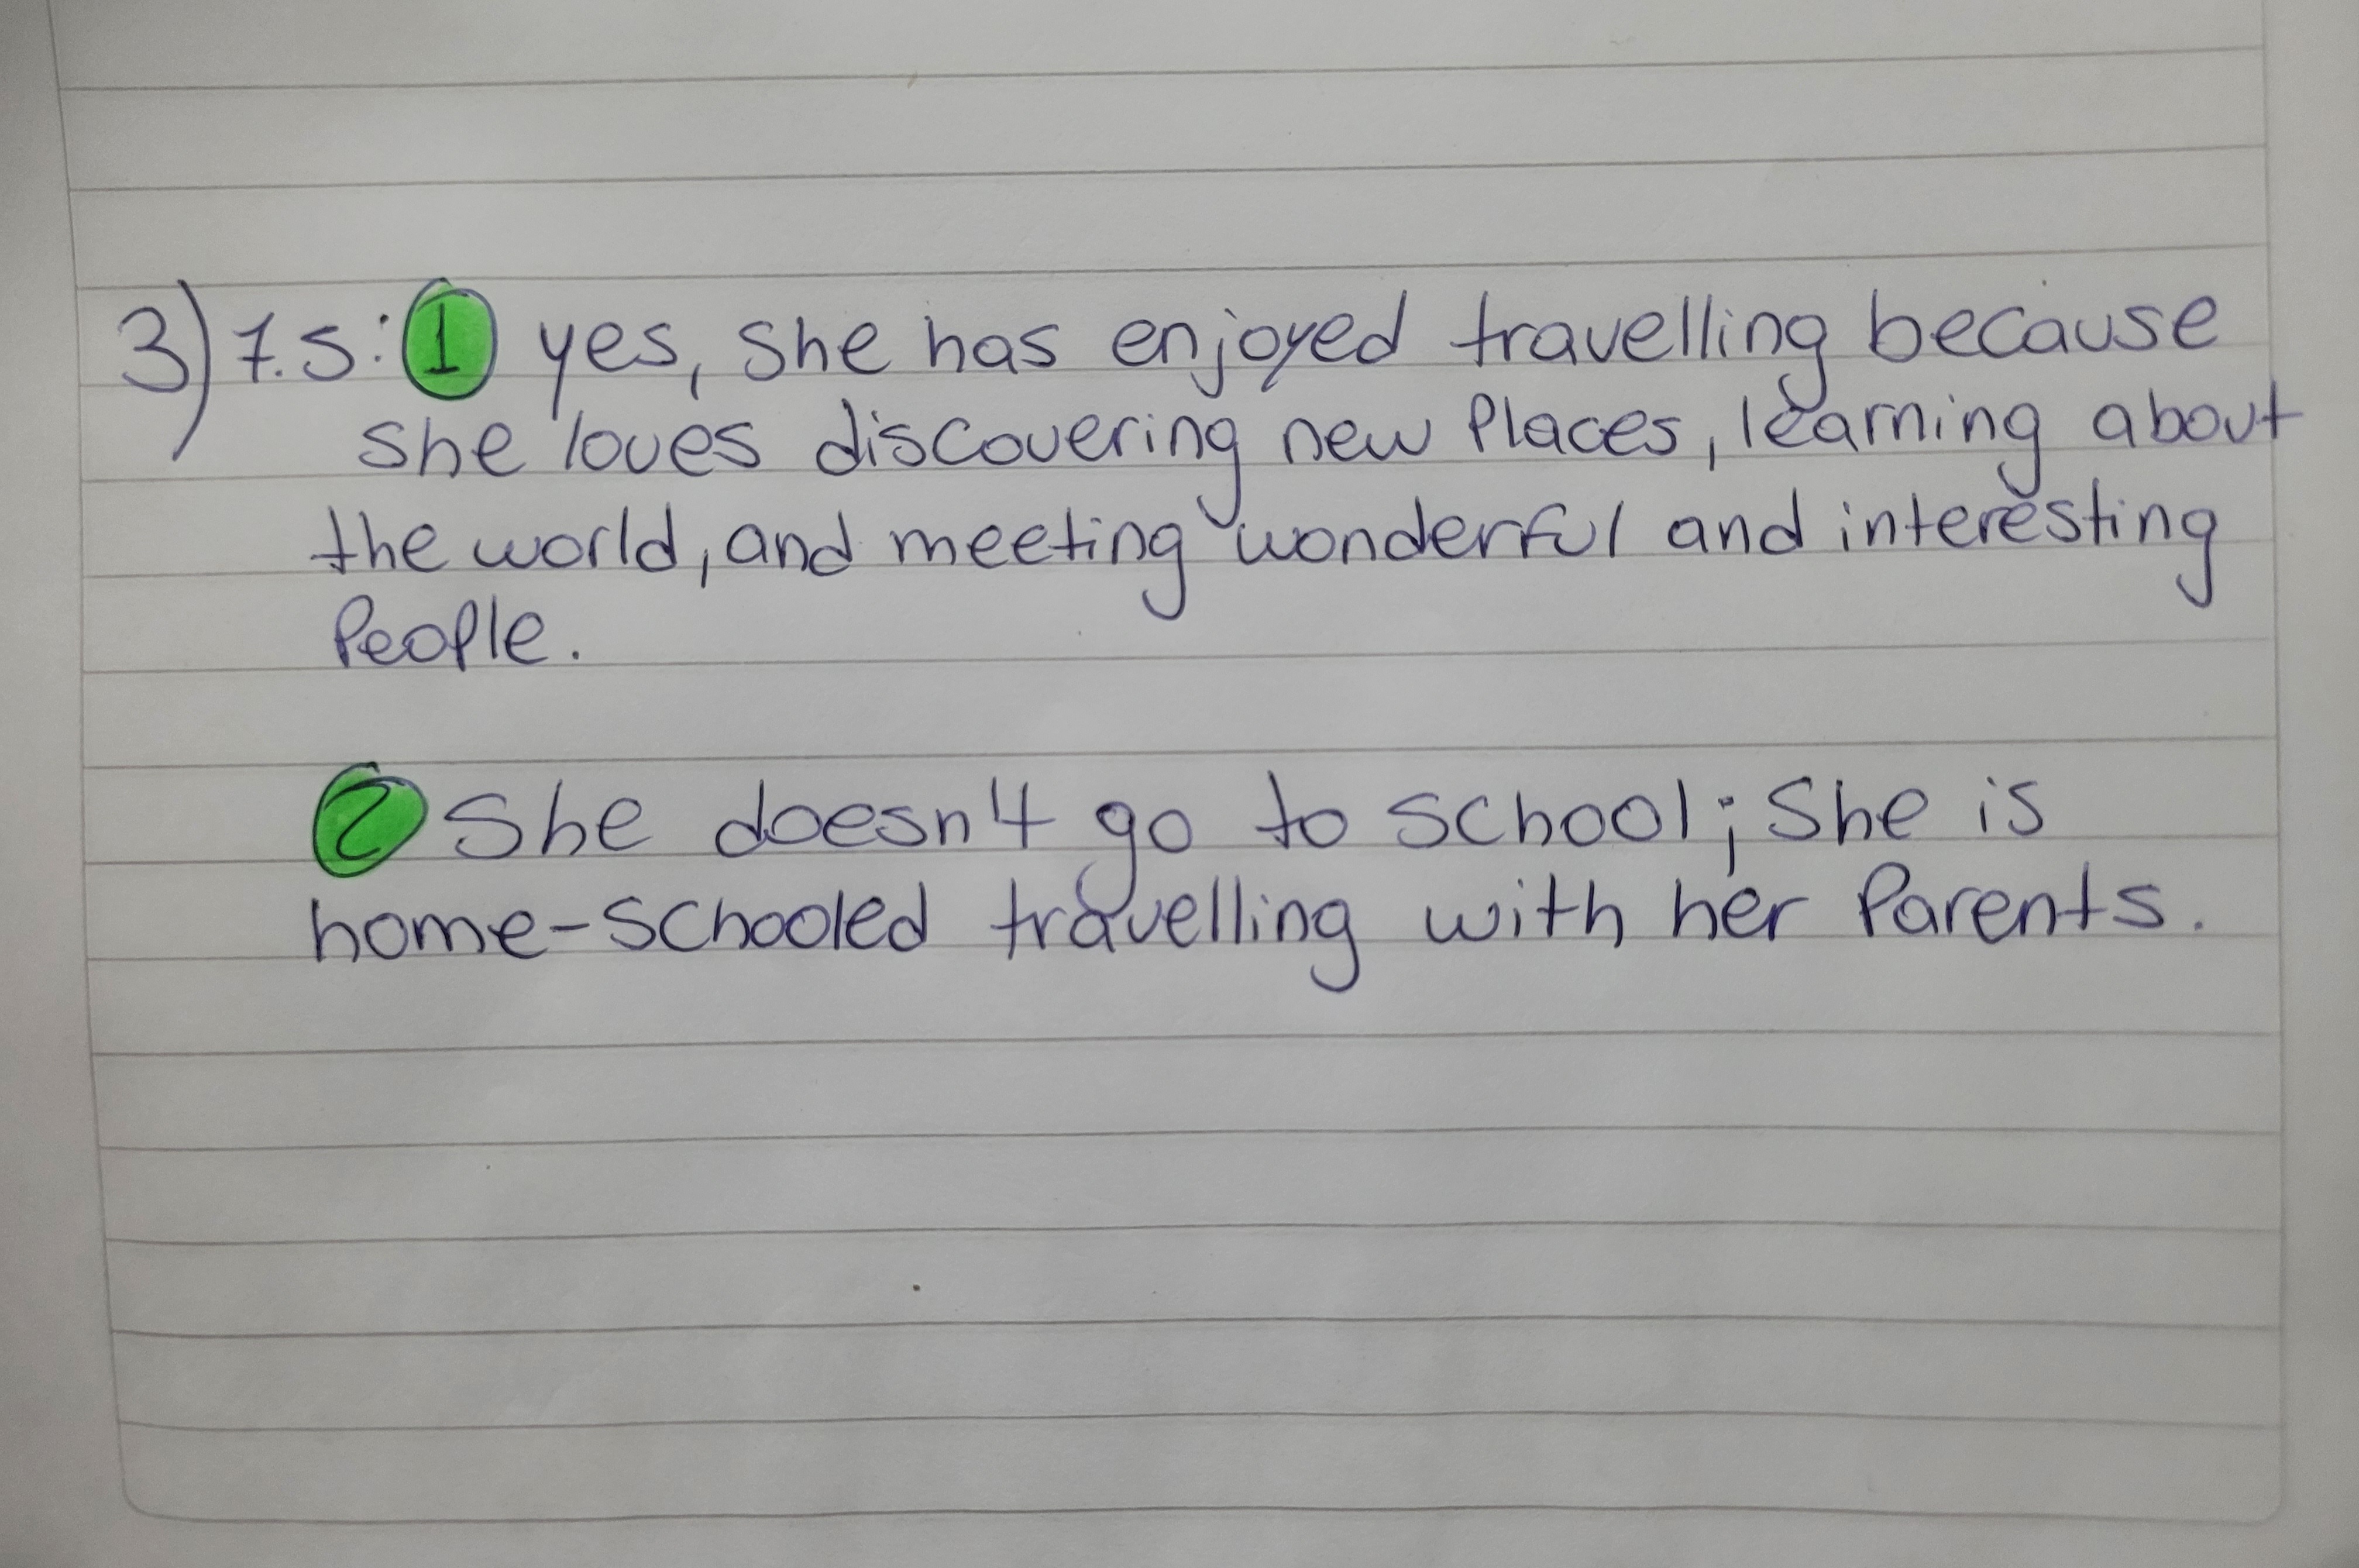 3) 7.5: 1 yes, she has enjoyed travelling because
she loves discovering new Places, learning about
the world, and meeting wonderful and interesting
People.
2 She doesn't go to school; She is
home-schooled travelling with her Parents.